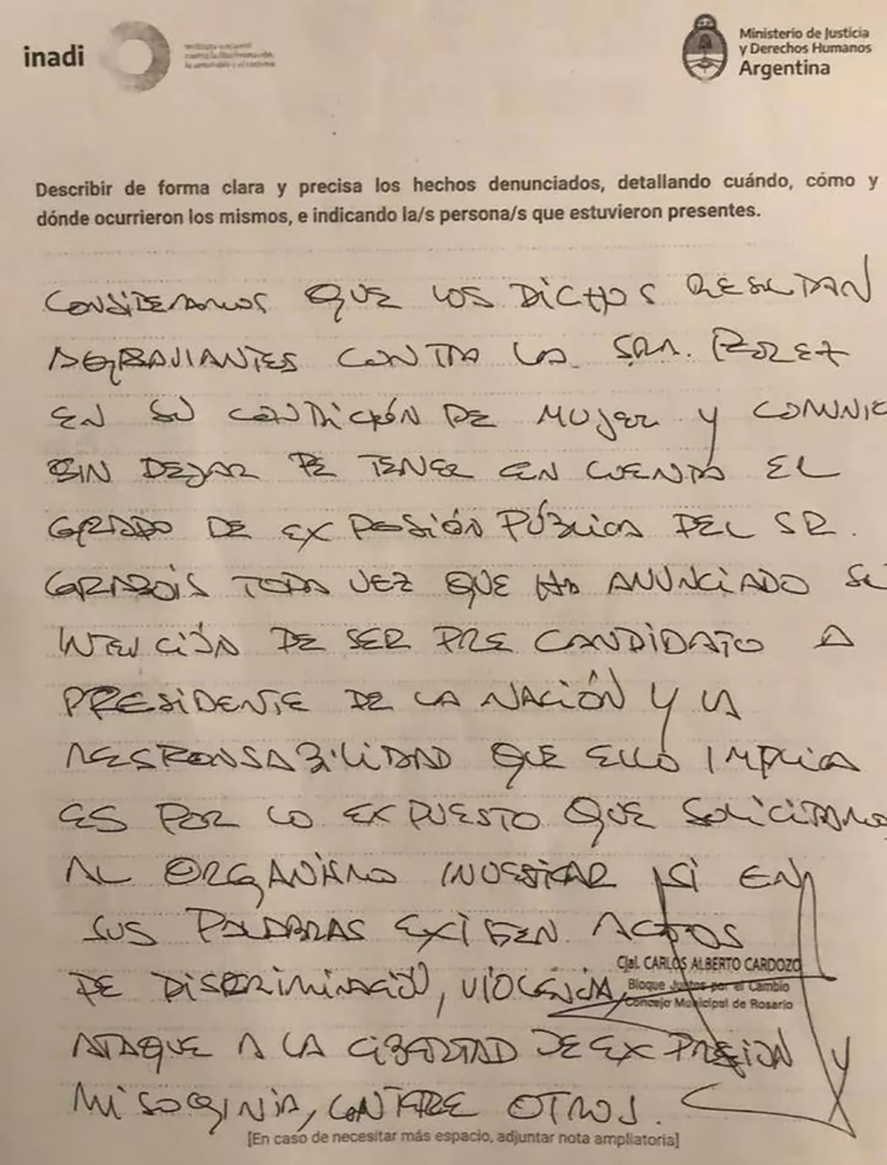 inadi
Ministerio de Justicia
y Derechos Humanos
Argentina
Describir de forma clara y precisa los hechos denunciados, detallando cuándo, cómo y
dónde ocurrieron los mismos, e indicando la/s persona/s que estuvieron presentes.
CONSIDERAMOS QUE LOS DICHOS RESULTAN
AGRAVIANTES CONTRA LA SRA.
EN SU CONDICIÓN DE MUJER Y COMUNIC
SIN DEJAR DE TENER EN CUENTA EL
GRADO DE EXPOSICIÓN PÚBLICA DEL SR.
GRABOIS TODA VEZ QUE HA ANUNCIADO SU
INTENCIÓN DE SER PRE CANDIDATO A
PRESIDENTE DE LA NACIÓN Y LA
RESPONSABILIDAD QUE ELLO IMPLICA
ES POR LO EXPUESTO QUE SOLICITAMO
AL ORGANISMO INVESTIGAR SI EN
SUS PALABRAS EXISTEN ACTOS
Cjal. CARLOS ALBERTO CARDOZO
DE DISCRIMINACIÓN, VIOLENCIA,
Bloque Juntos por el Cambio
Concejo Municipal de Rosario
ATAQUE A LA LIBERTAD DE EXPRESION Y
MISOGINIA, ENTRE OTROS.
[En caso de necesitar más espacio, adjuntar nota ampliatoria]